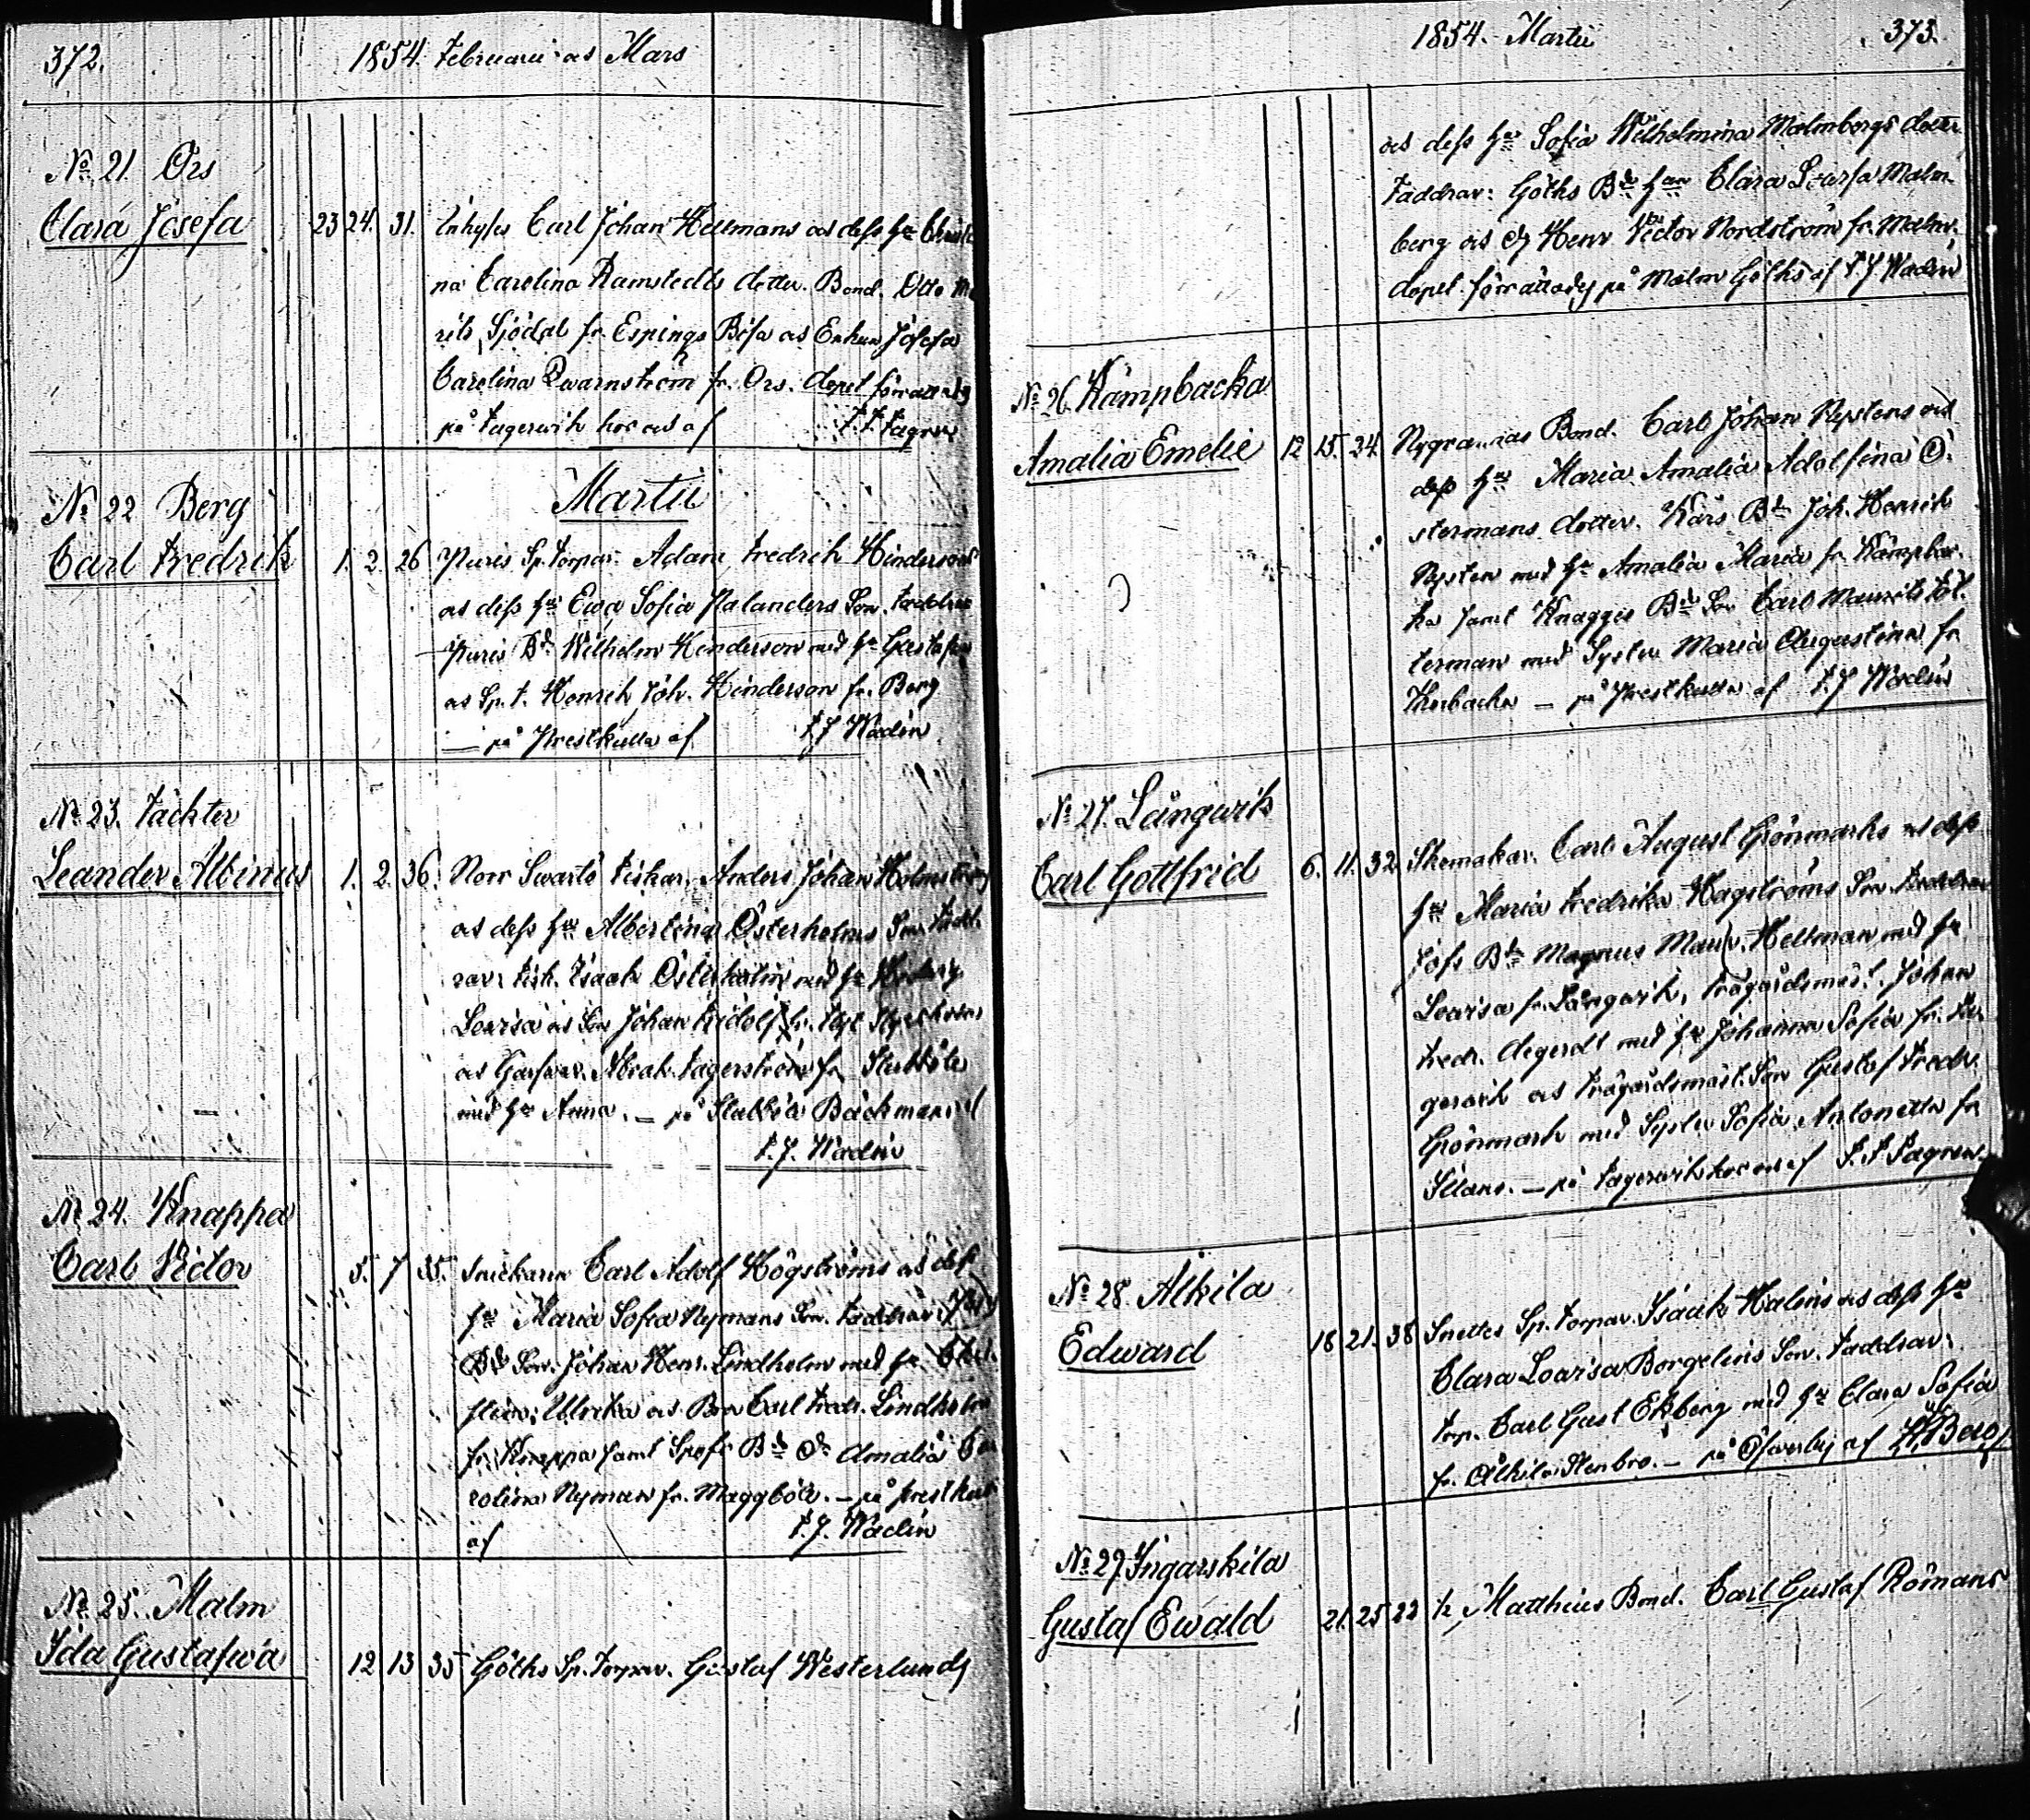 372. 1854. Februarii och Mars
No 21. Ors
Clara Josefa 23 24. 31. Inhyses Carl Johan Hellmans och dess Hu
na Carolina Ramstedts dotter. Bond. Otto
Sjödal fr. Espings Böle och Enkan Josefa
Carolina Qwarnström fr. Ors. dopet förrättadt
på Fagerwik hos oss af
Martii
No 22 Berg
Carl Fredrik 1. 2. 26 Puris Sp. torpar. Adam Fredrik Hindersons
och dess Hu Ewa Sofia Palanders Son. Faddrar
Puris Bd Wilhelm Hinderson med Hu Gustafva
och Sp. t. Henrik Joh. Hinderson fr. Berg
— på Prestkulla af F. J. Wadén
No 23. Täckter
Leander Albinus 1. 2. 36. Norr Swartö Fiskar. Anders Johan Holmströms
och dess Hu Albertina Österholms Son. Fadd
rar: Fisk. Isaak Österholm med Hu Hedwig
Lovisa och Son Johan Fridolf fr.
och Abrah. Fagerström fr. Stubböle
med Hu Anna. — på Stubböle Bäckmans af
F. J. Wadén
No 24. Knappa
Carl Victor 5. 7 35. Snickaren Carl Adolf Högströms och dess
Hu Maria Sofia Nymans Son. Faddrar:
Bd Son. Johan Henr. Lindholm med Hu
Ulrika och Carl Fredr. Lindholm
fr. Knappa samt Bd Dr Amalia
rolina Nyman fr. Maggböle. — på Prestkulla
af F. J. Wadén
No 25. Malm
Ida Gustafwa 12 13 35 Göths Sp. torpar. Gustaf Westerlunds
1854. Martii 373.
och dess Hu Sofia Wilhelmina Malmbergs dotter
Faddrar: Göths Bd Hu Clara Lovisa Malm-
berg och Henr Victor Nordström fr. Malm.
dopet förrättades på Malm Göths af F. J. Wadén
No 26. Kämpbacka
Amalia Emelie 12 15. 24. Nygrannas Bond. Carl Johan Nystens och
dess Hu Maria Amalia Adolfina Ö-
stermans dotter. Kärs Bd Joh. Henrik
Nysten med Hu Amalia Maria fr. Kämpbac-
ka samt Knagges Bd Son Carl Maurits
terman med Syster Maria Augustina fr.
— på Prestkulla af F. J. Wadén
No 27. Långwik
Carl Gottfrid 6. 11. 32 Skomakar. Carl August Grönmarks och dess
Hu Maria Fredrika Hagströms Son. Faddrar
Bd Magnus Maur. Hellman med Hu
Lovisa fr. Långwik, Trägårdsmäst. Johan
Fredr. Degerdt med Hu Johanna Sofia fr. Fa-
gerwik och Trägårdsmäst. Son Gustaf Fredr.
Grönmark med Syster Sofia Antonetta fr.
— på Fagerwik hos oss af
No 28. Alkila
Edward 18 21. 38 Snettes Sp. torpar. Isaak Haléns och dess Hu
Clara Lovisa Borgelins Son. Faddrar.
torp. Carl Gust Ekberg med Hu Clara Sofia
fr. Alkila Stenbro. — på Öfwerby af Berg
No 29 Ingarskila
Gustaf Ewald 21. 25 22 ½ Matthies Bond. Carl Gustaf Römans